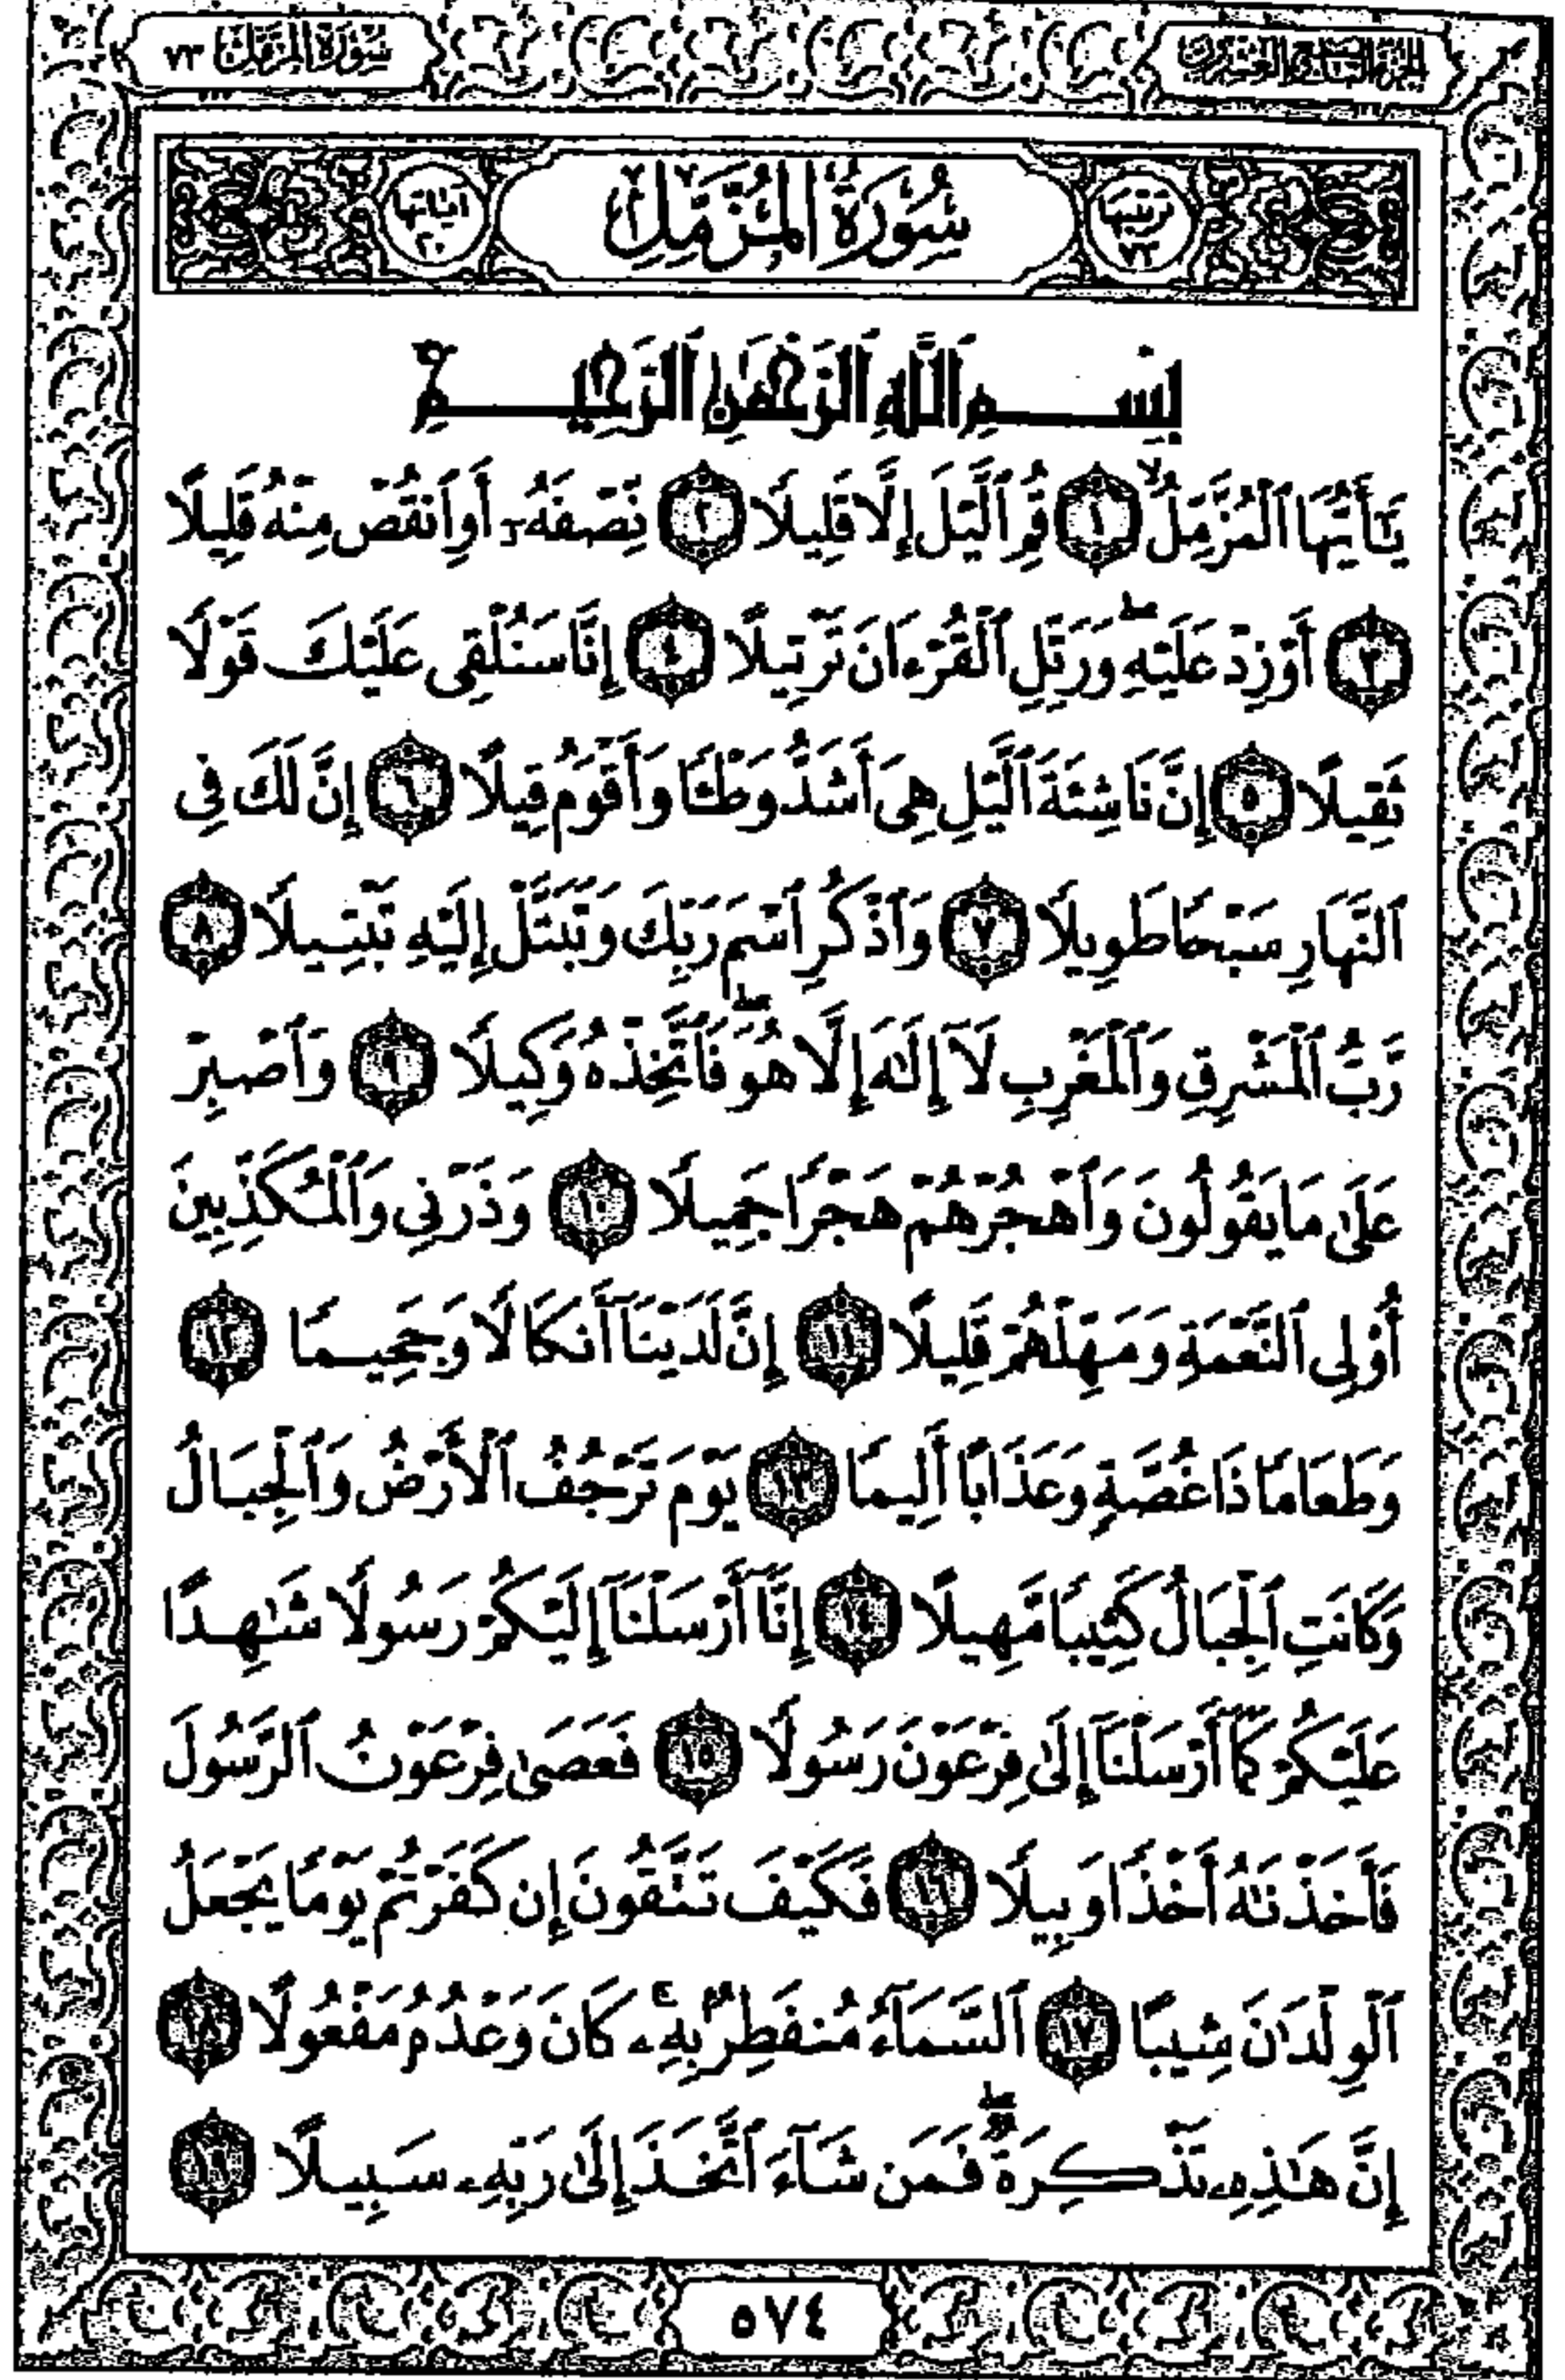 الجزء التاسع والعشرون
سورة المزمل ٧٣
ترتيبها ٧٣
سُورَةُ الْمُزَّمِّلِ
آياتها ٢٠
بِسْمِ ٱللَّهِ ٱلرَّحْمَٰنِ ٱلرَّحِيمِ
يَٰٓأَيُّهَا ٱلْمُزَّمِّلُ ١ قُمِ ٱلَّيْلَ إِلَّا قَلِيلًا ٢ نِّصْفَهُۥٓ أَوِ ٱنقُصْ مِنْهُ قَلِيلًا
٣ أَوْ زِدْ عَلَيْهِ ۖ وَرَتِّلِ ٱلْقُرْءَانَ تَرْتِيلًا ٤ إِنَّا سَنُلْقِى عَلَيْكَ قَوْلًا
ثَقِيلًا ٥ إِنَّ نَاشِئَةَ ٱلَّيْلِ هِىَ أَشَدُّ وَطْـًٔا وَأَقْوَمُ قِيلًا ٦ إِنَّ لَكَ فِى
ٱلنَّهَارِ سَبْحًا طَوِيلًا ٧ وَٱذْكُرِ ٱسْمَ رَبِّكَ وَتَبَتَّلْ إِلَيْهِ تَبْتِيلًا ٨
رَّبُّ ٱلْمَشْرِقِ وَٱلْمَغْرِبِ لَآ إِلَٰهَ إِلَّا هُوَ ۖ فَٱتَّخِذْهُ وَكِيلًا ٩ وَٱصْبِرْ
عَلَىٰ مَا يَقُولُونَ وَٱهْجُرْهُمْ هَجْرًا جَمِيلًا ١٠ وَذَرْنِى وَٱلْمُكَذِّبِينَ
أُو۟لِى ٱلنَّعْمَةِ وَمَهِّلْهُمْ قَلِيلًا ١١ إِنَّ لَدَيْنَآ أَنكَالًا وَجَحِيمًا ١٢
وَطَعَامًا ذَا غُصَّةٍ وَعَذَابًا أَلِيمًا ١٣ يَوْمَ تَرْجُفُ ٱلْأَرْضُ وَٱلْجِبَالُ
وَكَانَتِ ٱلْجِبَالُ كَثِيبًا مَّهِيلًا ١٤ إِنَّآ أَرْسَلْنَآ إِلَيْكُمْ رَسُولًا شَٰهِدًا
عَلَيْكُمْ كَمَآ أَرْسَلْنَآ إِلَىٰ فِرْعَوْنَ رَسُولًا ١٥ فَعَصَىٰ فِرْعَوْنُ ٱلرَّسُولَ
فَأَخَذْنَٰهُ أَخْذًا وَبِيلًا ١٦ فَكَيْفَ تَتَّقُونَ إِن كَفَرْتُمْ يَوْمًا يَجْعَلُ
ٱلْوِلْدَٰنَ شِيبًا ١٧ ٱلسَّمَآءُ مُنفَطِرٌۢ بِهِۦ ۚ كَانَ وَعْدُهُۥ مَفْعُولًا ١٨
إِنَّ هَٰذِهِۦ تَذْكِرَةٌ ۖ فَمَن شَآءَ ٱتَّخَذَ إِلَىٰ رَبِّهِۦ سَبِيلًا ١٩
٥٧٤